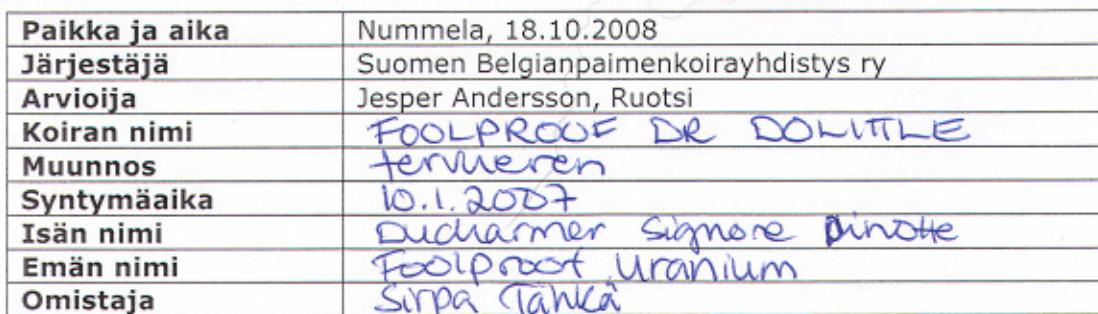 Paikka ja aika Nummela, 18.10.2008
Järjestäjä Suomen Belgianpaimenkoirayhdistys ry
Arvioija Jesper Andersson, Ruotsi
Koiran nimi FOOLPROOF DR DOLITTLE
Muunnos tervueren
Syntymäaika 10.1.2007
Isän nimi Ducharmer Signore Dinotte
Emän nimi Foolproof Uranium
Omistaja Sirpa Tähkä